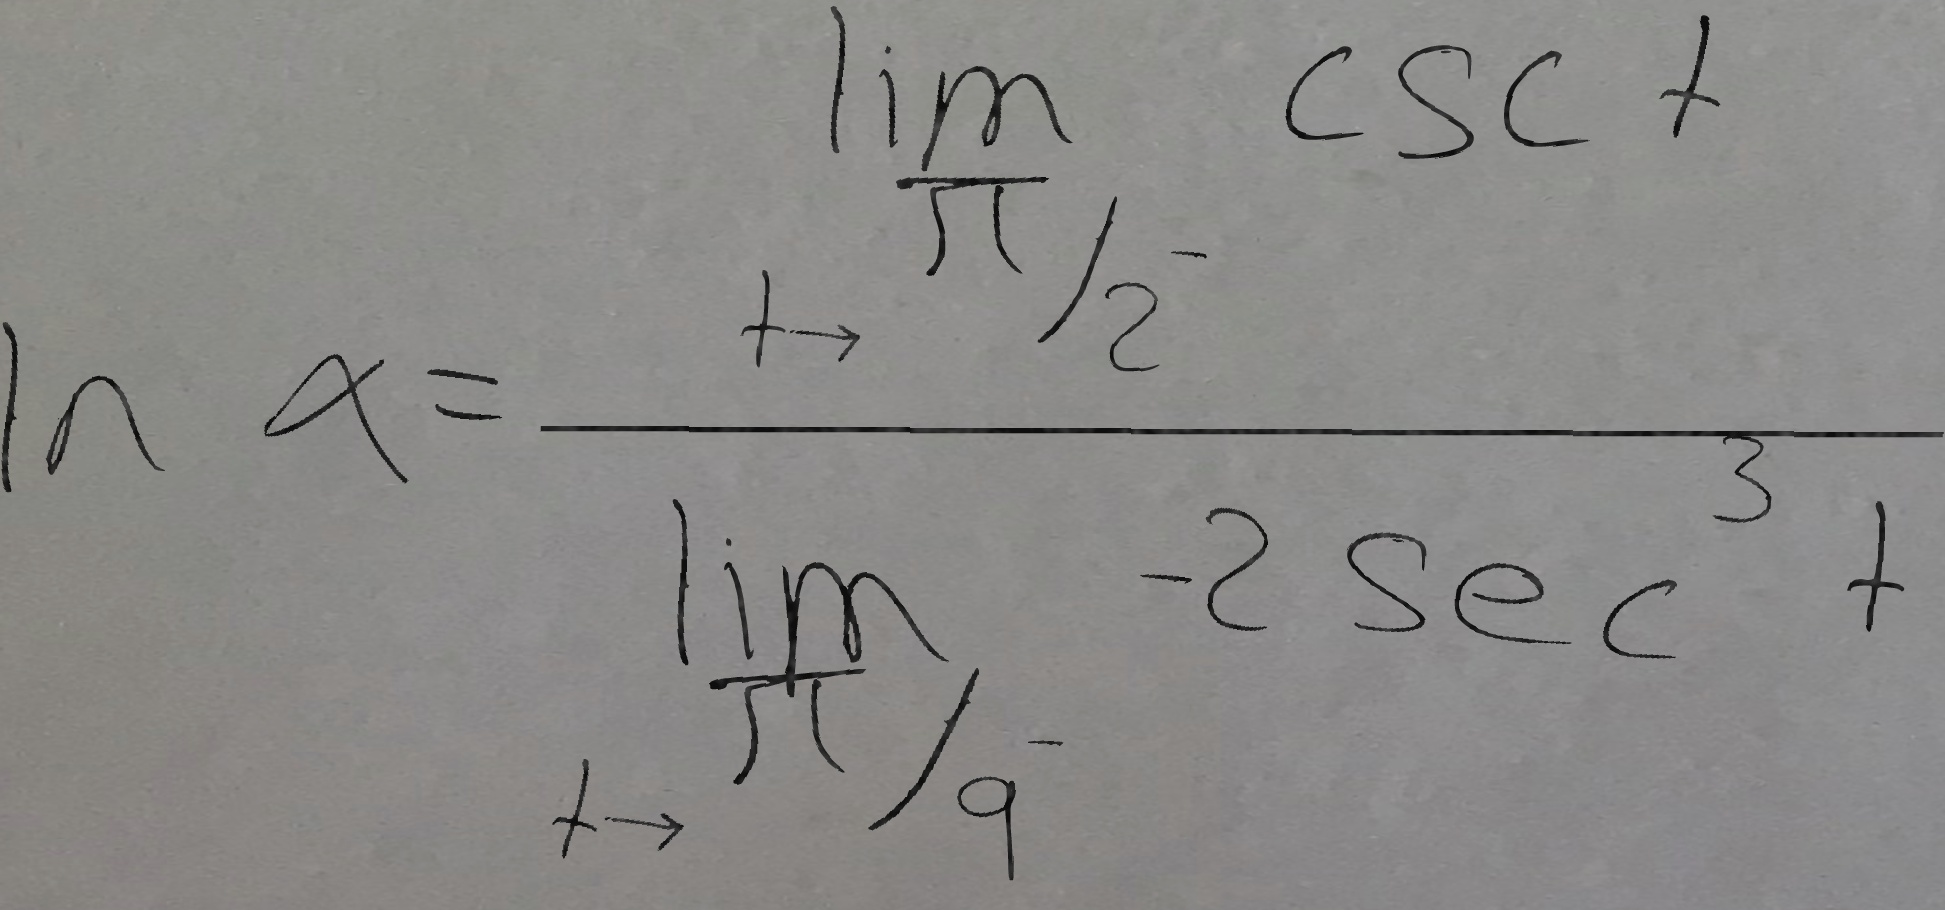 ln α = \frac{\lim_{t \to \pi/2^-} \csc t}{\lim_{t \to \pi/9^-} -2 \sec^3 t}